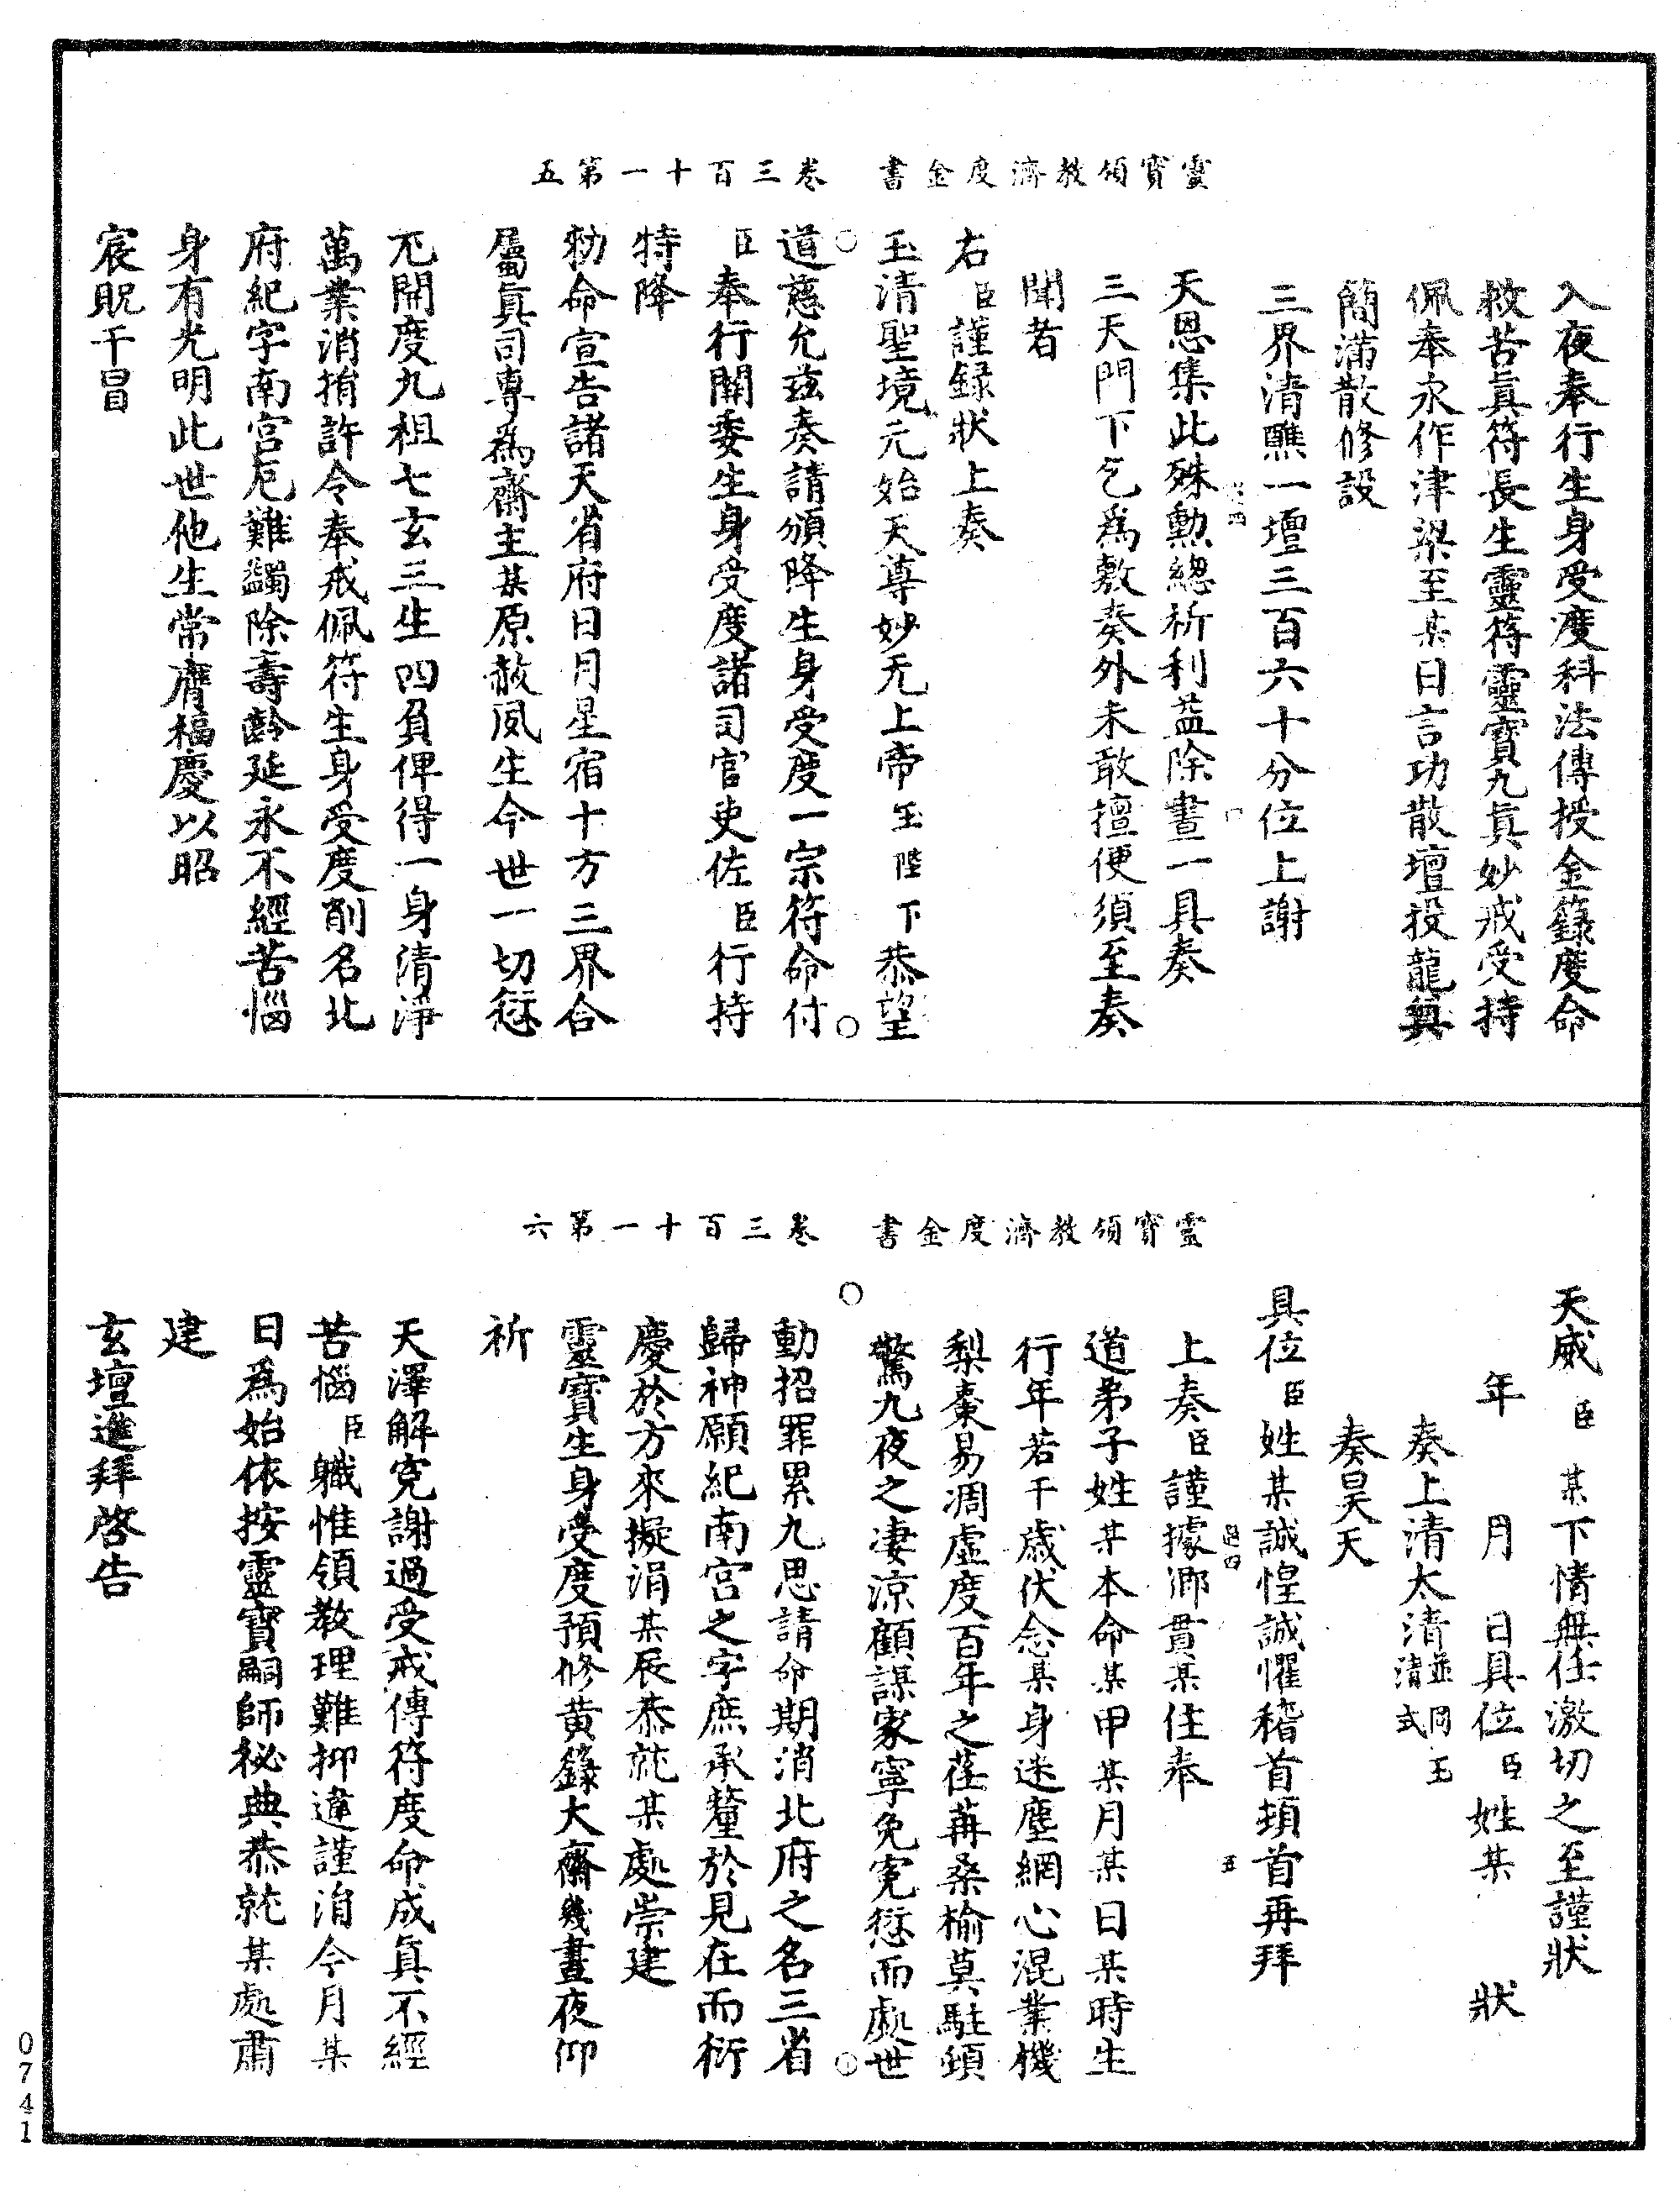 靈寶領教濟度金書　卷三百十一第五
入夜奉行生身受度科法傳授金籙度命
救苦眞符長生靈符靈寶九眞妙戒受持
佩奉永作津梁至某日言功散壇投龍奠
簡滿散修設
三界清醮一壇三百六十分位上謝
天恩集此殊勲總祈利益除晝一具奏
三天門下乞爲敷奏外未敢擅便須至奏
聞者
右臣謹錄狀上奏
玉清聖境元始天尊妙无上帝玉陛下恭望
道慈允兹奏請頒降生身受度一宗符命付
臣奉行關委生身受度諸司官吏佐臣行持
特降
勑命宣告諸天省府日月星宿十方三界合
屬眞司專爲齋主某原赦夙生今世一切愆
尤開度九祖七玄三生四負俾得一身清淨
萬業消捐許令奉戒佩符生身受度削名北
府紀字南宮厄難蠲除壽齡延永不經苦惱
身有光明此世他生常膺福慶以昭
宸貺干冒
靈寶領教濟度金書　卷三百十一第六
天威　臣　某下情無任激切之至謹狀
年　月　日具位臣姓某　狀
奏上清太清並同玉清式
奏昊天
具位臣姓某誠惶誠懼稽首頓首再拜
上奏臣謹據鄉貫某住奉
道弟子姓某本命某甲某月某日某時生
行年若干歲伏念某身迷塵網心混業機
梨棗易凋虛度百年之荏苒桑榆莫駐頻
驚九夜之凄涼顧謀家寧免寃愆而處世
動招罪累九思請命期消北府之名三省
歸神願紀南宮之字庶承釐於見在而衍
慶於方來擬涓某辰恭就某處崇建
靈寶生身受度預修黄籙大齋幾晝夜仰
祈
天澤解寃謝過受戒傳符度命成眞不經
苦惱臣職惟領教理難抑違謹涓今月某
日爲始依按靈寶嗣師祕典恭就某處肅
建
玄壇進拜啓告
0741